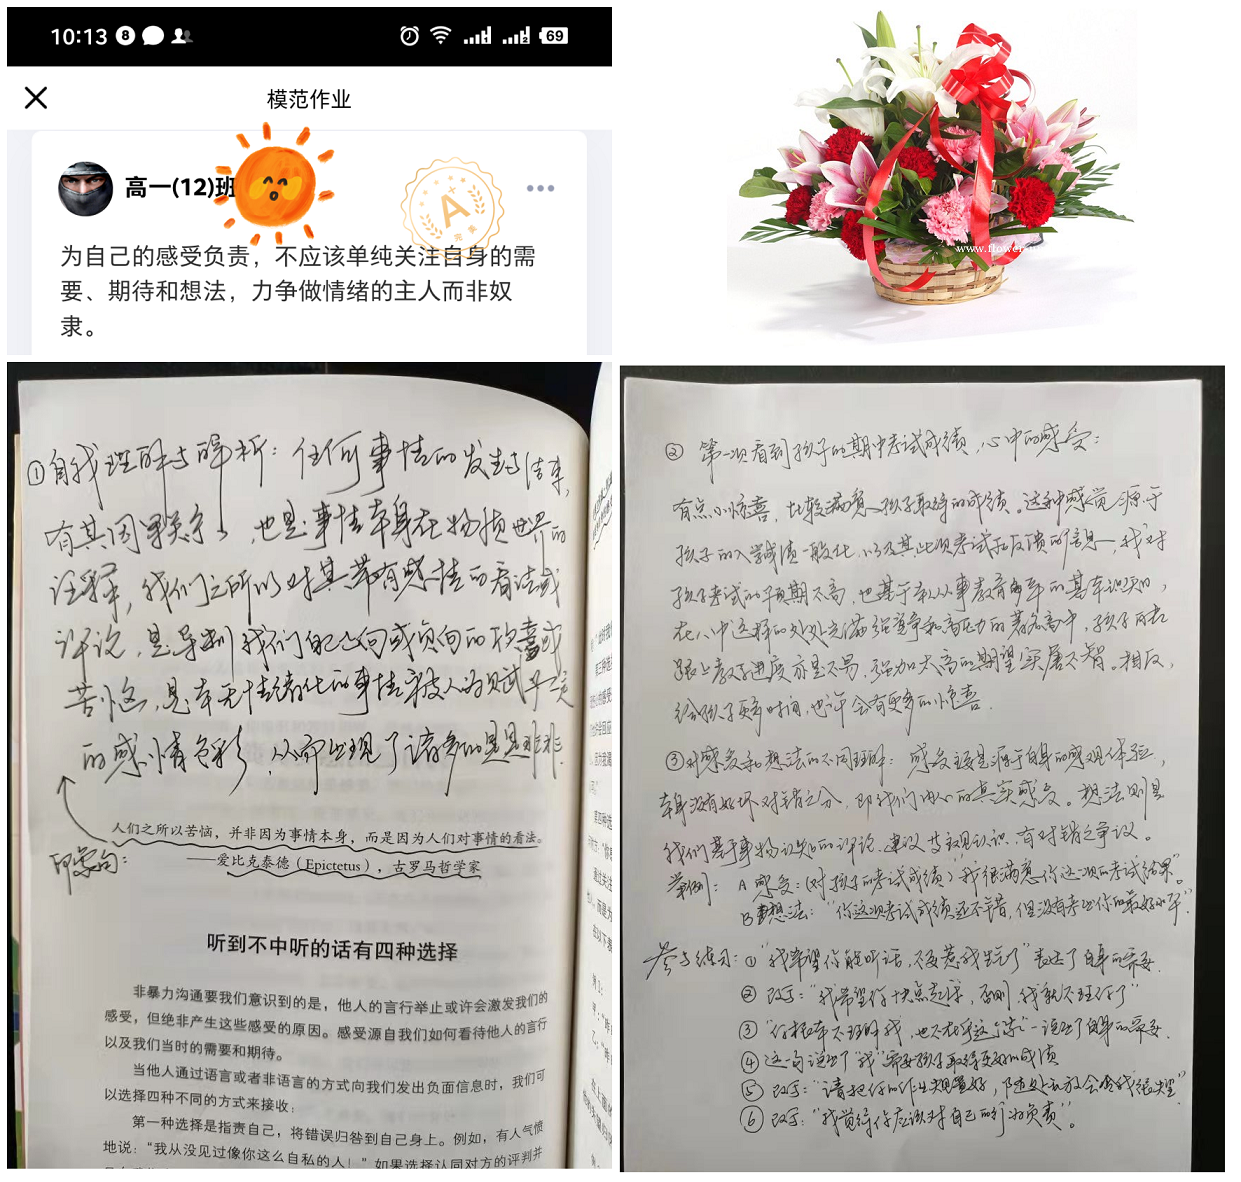 10:13
69
模范作业
高一(12)班
A
完美
为自己的感受负责，不应该单纯关注自身的需
要、期待和想法，力争做情绪的主人而非奴
隶。
www.flower
①自我理解与解析：任何事情的发生与结束，
有其因果关系，也是事情本身在物质世界的
注释，我们之所以对其带有感情的看法或
评论，是导致我们正向或负向的欣喜或
苦恼，是本无情绪化的事情被人为赋予
的感情色彩，从而出现了诸多的是是非非。
人们之所以苦恼，并非因为事情本身，而是因为人们对事情的看法。
印象句：
——爱比克泰德（Epictetus），古罗马哲学家
听到不中听的话有四种选择
非暴力沟通要我们意识到的是，他人的言行举止或许会激发我们的
感受，但绝非产生这些感受的原因。感受源自我们如何看待他人的言行
以及我们当时的需要和期待。
当他人通过语言或者非语言的方式向我们发出负面信息时，我们可
以选择四种不同的方式来接收：
第一种选择是指责自己，将错误归咎到自己身上。例如，有人气愤
地说：“我从没见过像你这么自私的人！”如果选择认同对方的评判并
② 第一次看到孩子的期中考试成绩，心中的感受：
有点小惊喜，比较满意孩子取得的成绩。这种感觉源于
孩子的入学成绩一般化，以及其此次考试后反馈的信息，我对
孩子考试的预期不高，也基于本人从事教育多年的基本认知，
在八中这样的处处充满强竞争和高压力的著名高中，孩子能
跟上教学进度亦是不易，强加太高的期望实属不智。相反，
给孩子更多时间，也许会有更多的惊喜。
③对感受和想法的不同理解：感受该是源于自身的感观体验，
本身没有好坏对错之分，即我们内心的真实感受。想法则是
我们基于事物认知的评论、建议及主观认识，有对错之争议。
举例：A 感受：(对孩子的考试成绩)“我很满意你这次的考试结果”
B 想法：“你这次考试成绩还不错，但没有考出你的最好水平”
参与练习：①“我希望你能听话，不要惹我生气了”表达了自身的需要.
② 改予：“我希望你快点走，否则，我就不理你了”
③“你根本不理解我，也不在乎这个家”—说出了自身的需要.
④这一句说出了“我”需要孩子取得更好的成绩
⑤ 改予：“请把你的作业规置好，随处乱放会令我很失望”
⑥ 改予：“我觉得你应该对自己的行为负责”。